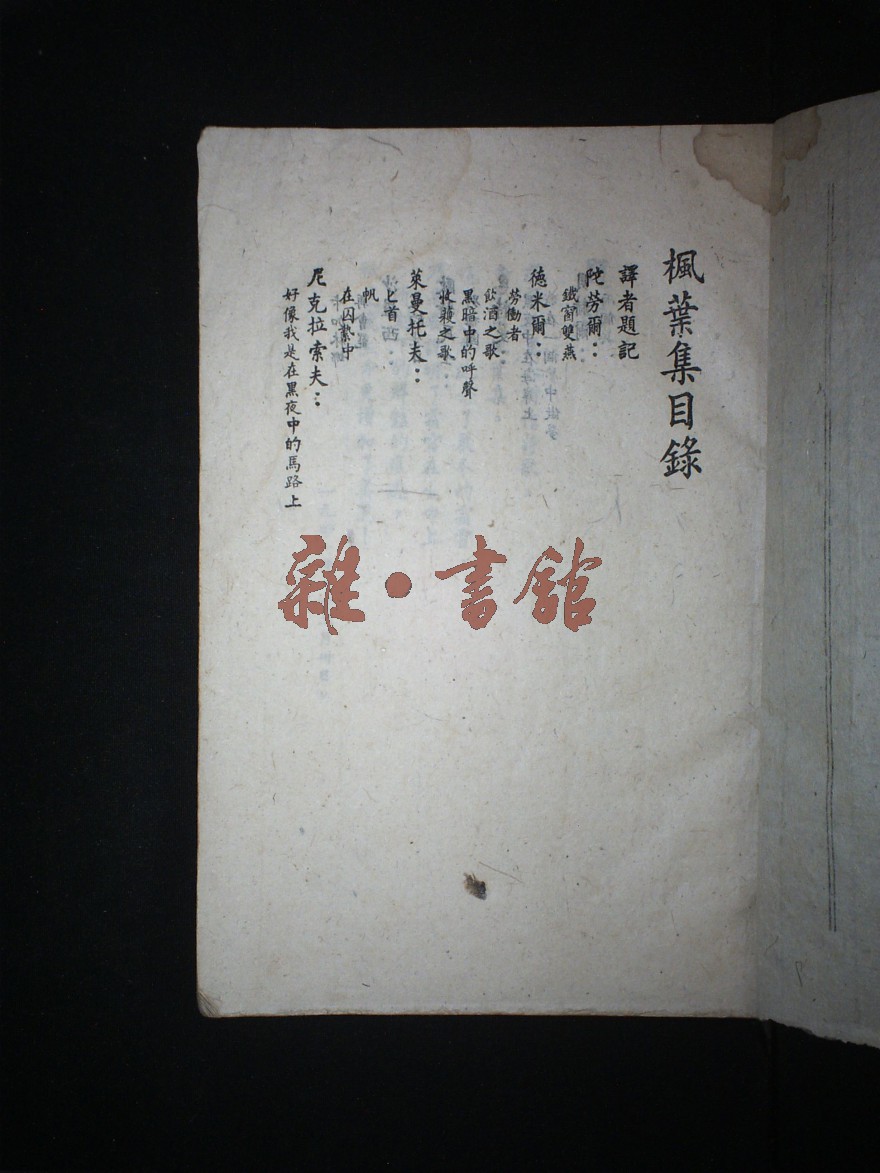 楓葉集目錄
譯者題記
陀勞爾：
鐵窗雙燕
德米爾：
勞働者
飲酒之歌
黑暗中的呼聲
收穫之歌
萊曼托夫：
匕首
帆
在囚縶中
尼克拉索夫：
好像我是在黑夜中的馬路上
雜·書館